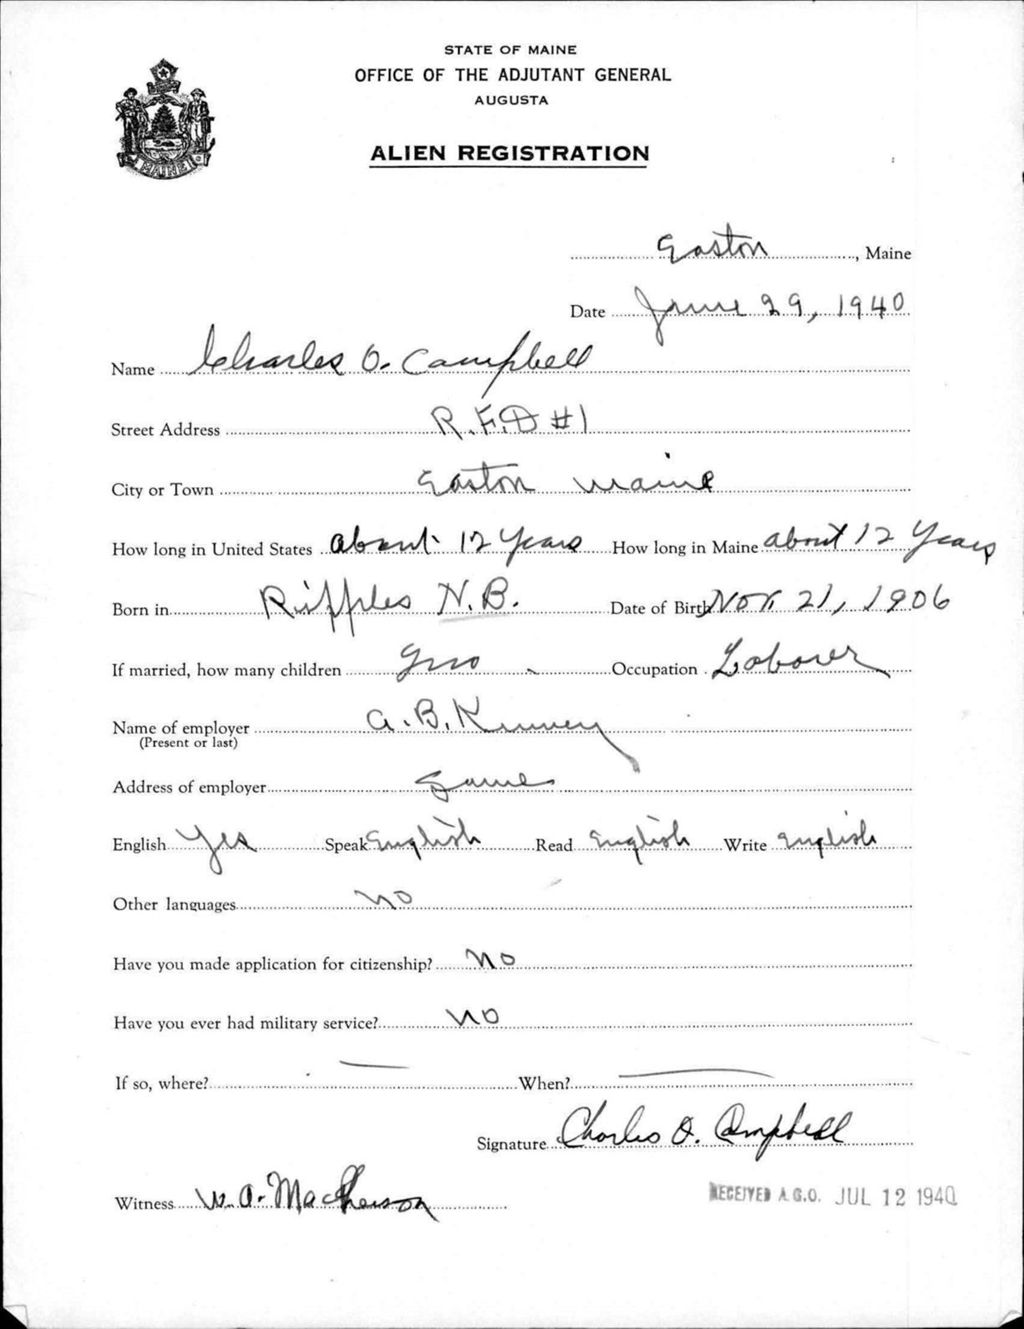 STATE OF MAINE
OFFICE OF THE ADJUTANT GENERAL
AUGUSTA
ALIEN REGISTRATION
MAINE
Easton, Maine
Date June 29, 1940
Name Charles O. Campbell
Street Address R.F.D #1
City or Town Easton Maine
How long in United States about 12 Years How long in Maine about 12 Years
Born in Ripples N.B. Date of Birth Nov 21, 1906
If married, how many children Occupation Laborer
Name of employer A.B. Kinney
(Present or last)
Address of employer Same
English Yes Speak English Read English Write English
Other languages No
Have you made application for citizenship? No
Have you ever had military service? No
If so, where? — When? —
Signature Charles O. Campbell
Witness W. A. MacPherson
RECEIVED A.G.O. JUL 12 1940